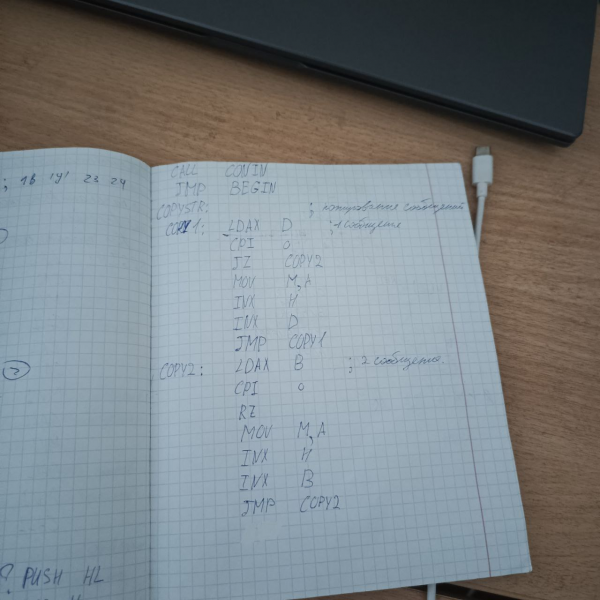 ; 1B 'Y' 23 24
CALL CONIN
JMP BEGIN
COPYSTR: ; копирование сообщений
COPY1: LDAX D ; 1 сообщение
CPI 0
JZ COPY2
MOV M,A
INX H
INX D
JMP COPY1
COPY2: LDAX B ; 2 сообщение
CPI 0
RZ
MOV M,A
INX H
INX B
JMP COPY2
? PUSH HL